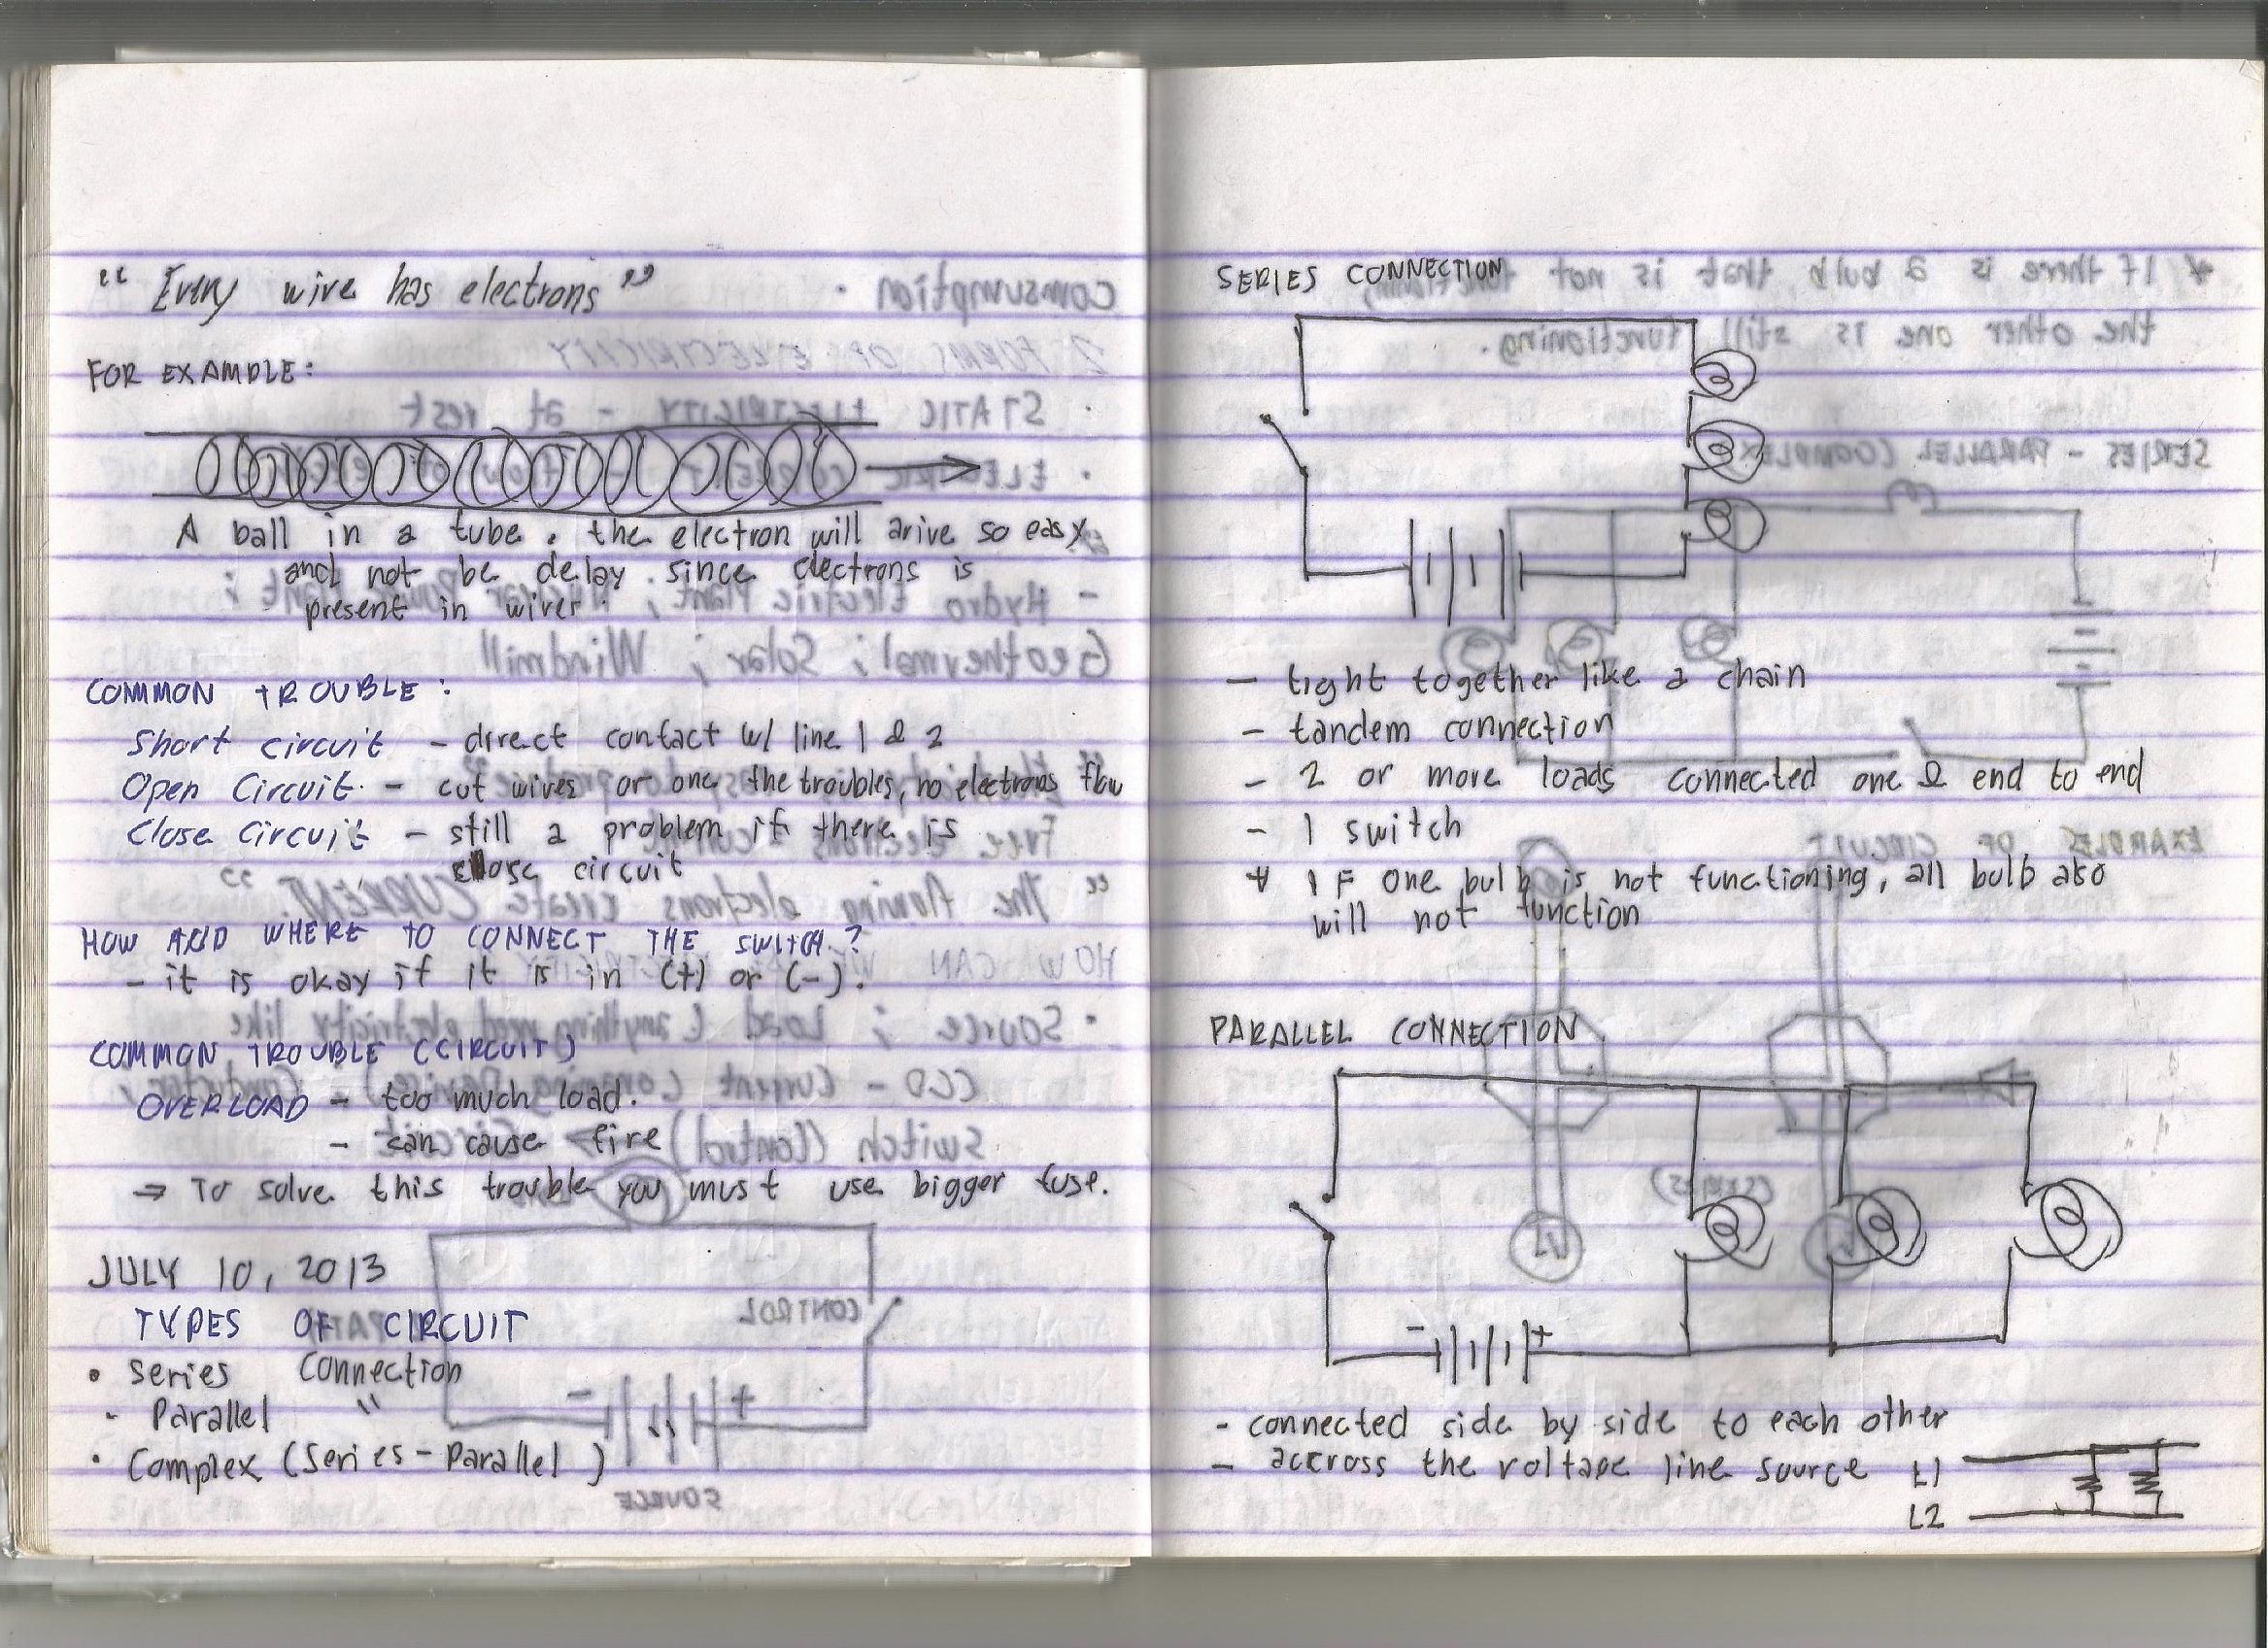 “ Every wire has electrons ”
FOR EXAMPLE:
A ball in a tube. the electron will arive so easy
and not be delay. since electrons is
present in wires.
COMMON TROUBLE:
Short circuit - direct contact w/ line 1 & 2
Open Circuit - cut wires or one the troubles, no electrons flow
Close Circuit - still a problem if there is
close circuit
HOW AND WHERE TO CONNECT THE SWITCH?
- it is okay if it is in (+) or (-).
COMMON TROUBLE (CIRCUIT)
OVERLOAD - too much load.
- can cause fire
⇒ To solve this trouble you must use bigger fuse.
JULY 10, 2013
TYPES OF CIRCUIT
• Series Connection
- Parallel "
• Complex (Series - Parallel)
SERIES CONNECTION
- tight together like a chain
- tandem connection
- 2 or more loads connected one end to end
- 1 switch
* IF one bulb is not functioning, all bulb also
will not function
PARALLEL CONNECTION
- +
- connected side by side to each other
- accross the voltage line source L1
L2